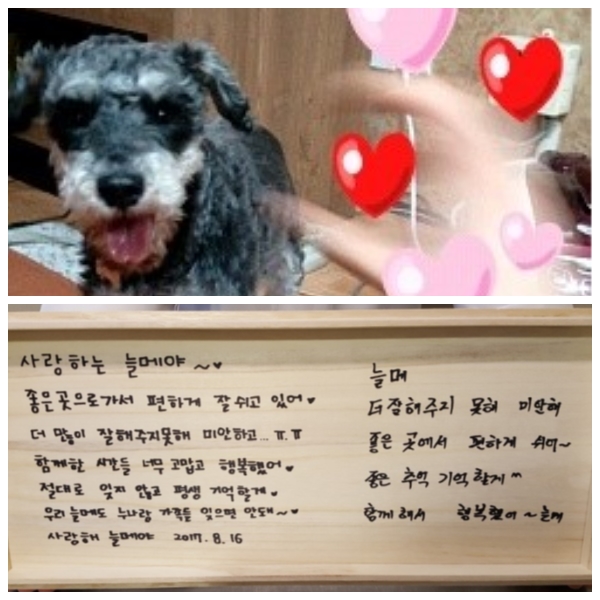 사랑하는 늘메야 ~♥
좋은곳으로가서 편하게 잘쉬고 있어♥
더 많이 잘해주지못해 미안하고... ㅠ.ㅠ
함께한 시간들 너무 고맙고 행복했어♥
절대로 잊지 않고 평생 기억할게♥
우리늘메도 누나랑 가족들 잊으면 안돼~♥
사랑해 늘메야 2017. 8. 16
늘메
더잘해주지 못해 미안해
좋은 곳에서 편하게 쉬어~
좋은 추억 기억할게^^
함께해서 행복했어 ~늘메